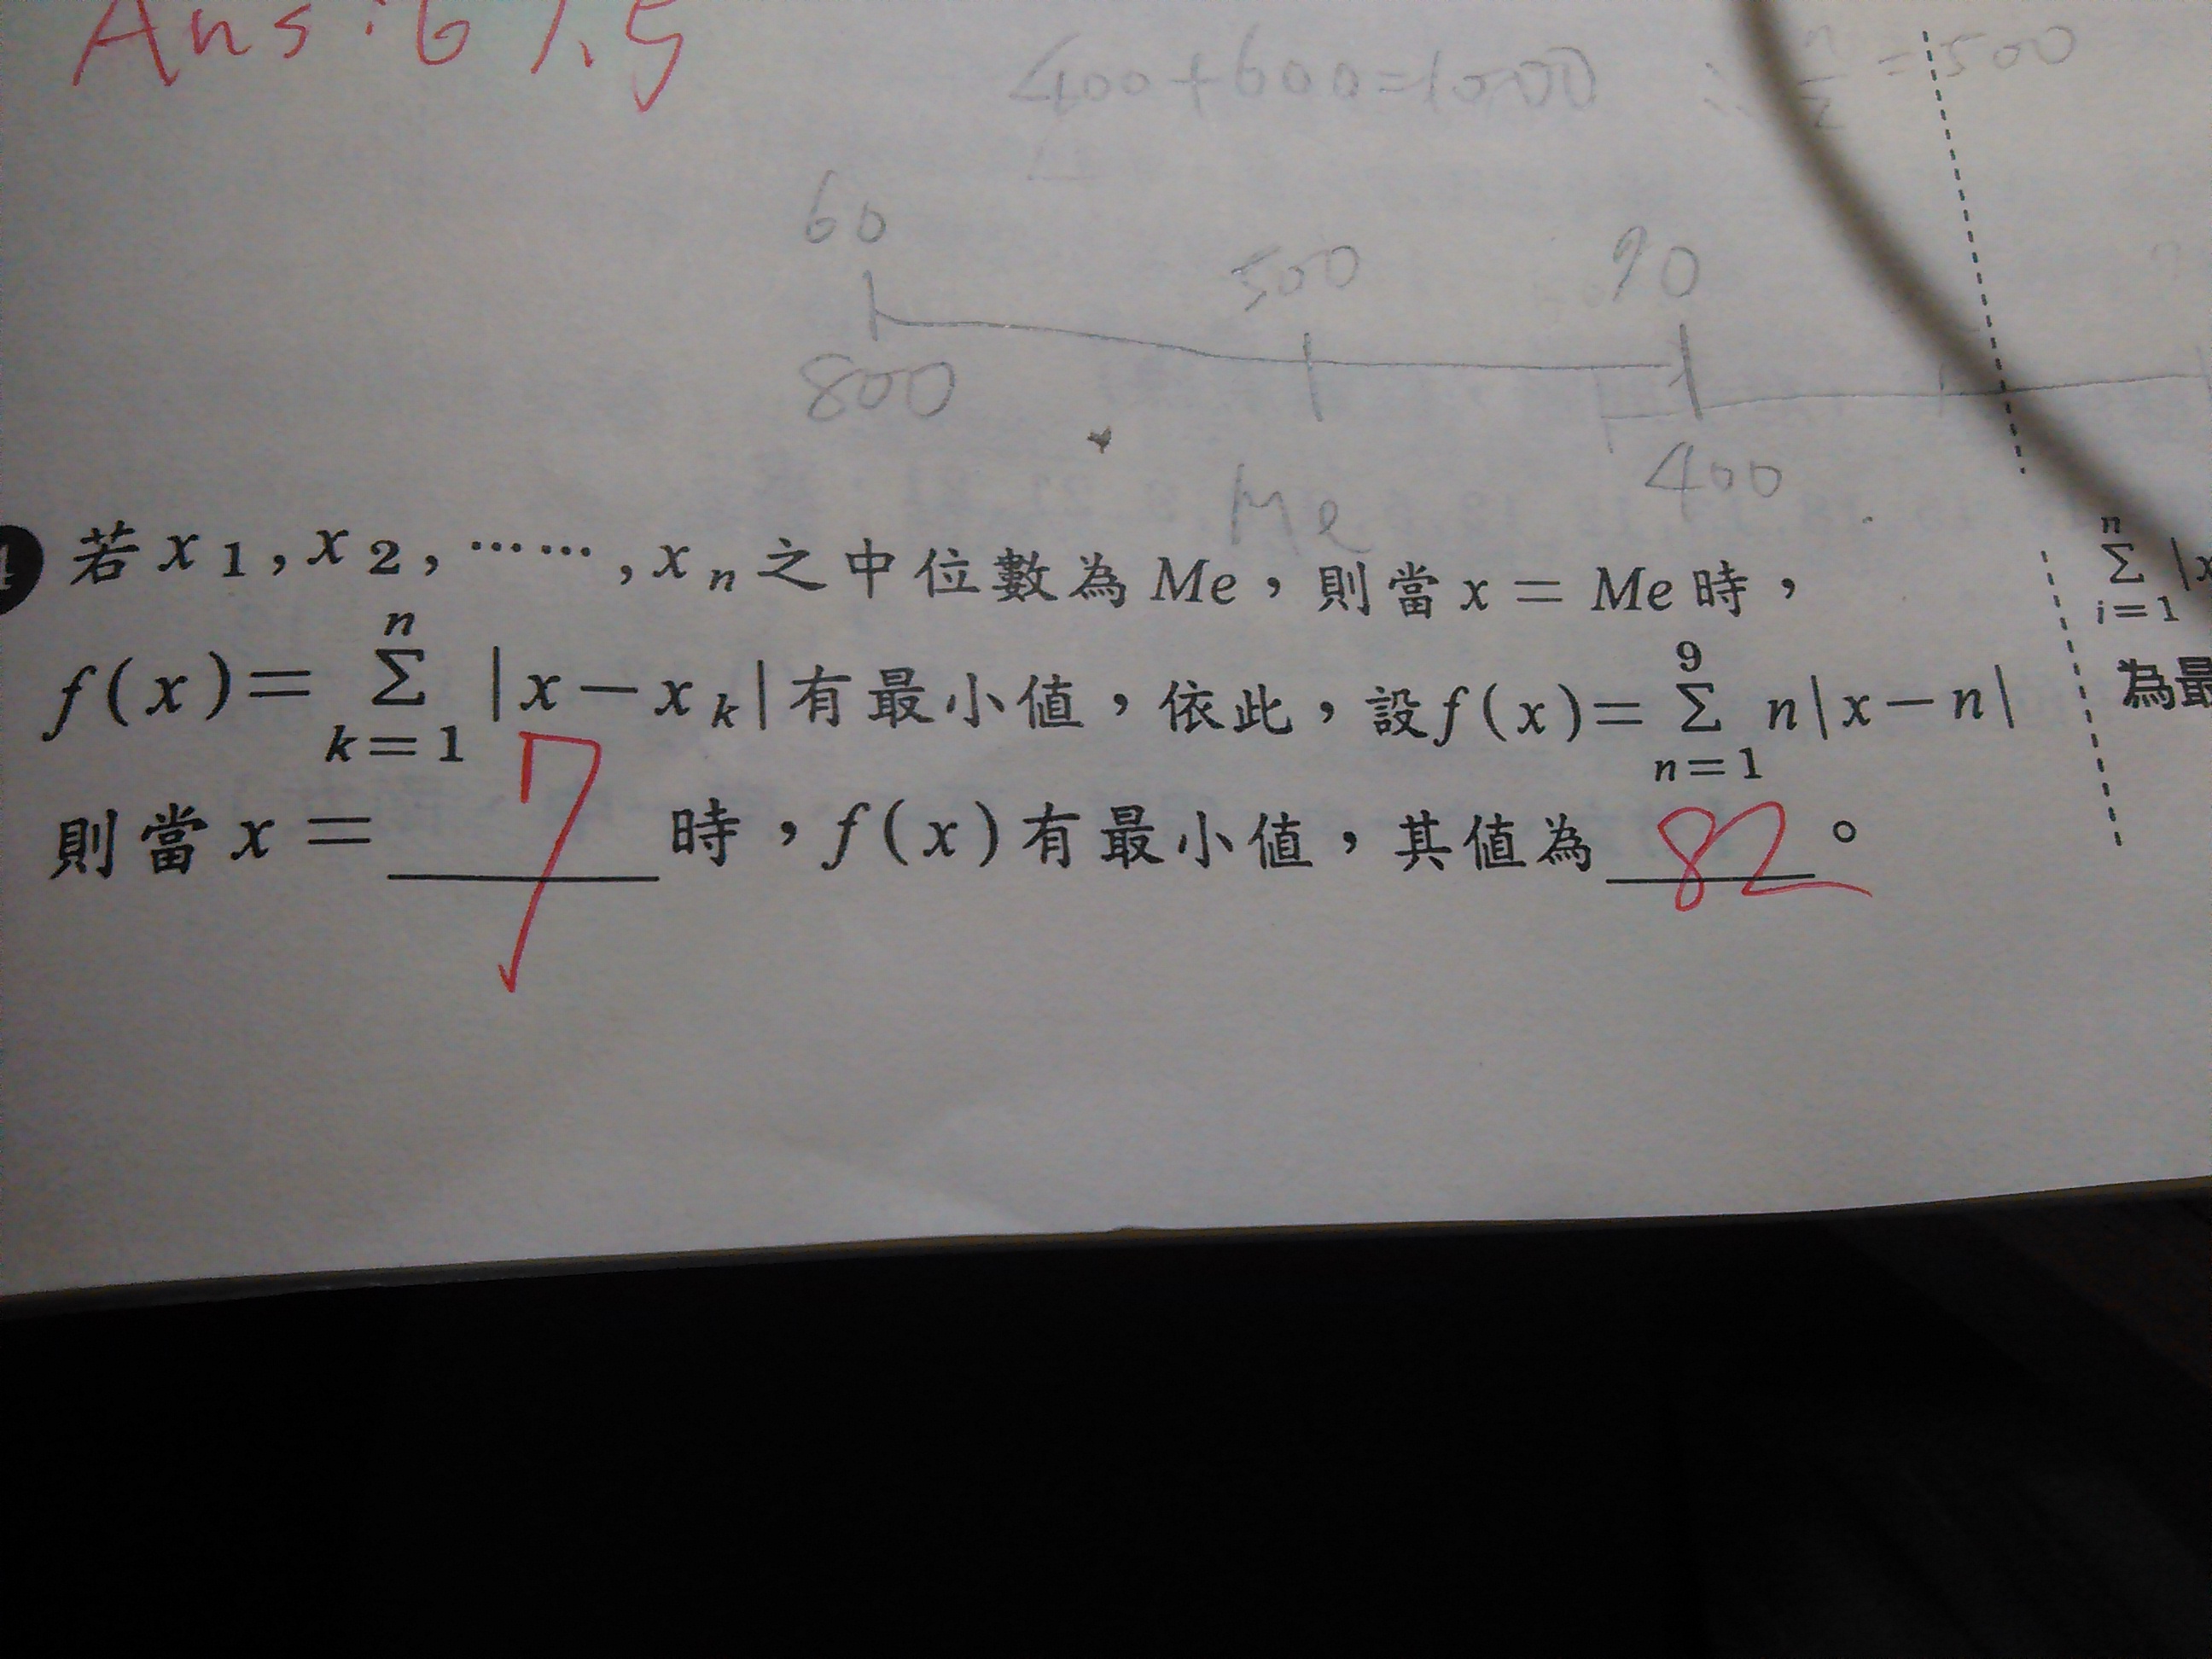 Ans : 67.5
400+600=1000 ∴ n/2 = 500
60 500 90
800 Me 400
若 x₁, x₂, ……, xₙ 之中位數為 Me，則當 x = Me 時，
f(x) = Σ_{k=1}^{n} |x－x_k| 有最小值，依此，設 f(x) = Σ_{n=1}^{9} n|x－n|
則當 x = 7 時，f(x) 有最小值，其值為 82。
n
Σ |x
i=1
為最